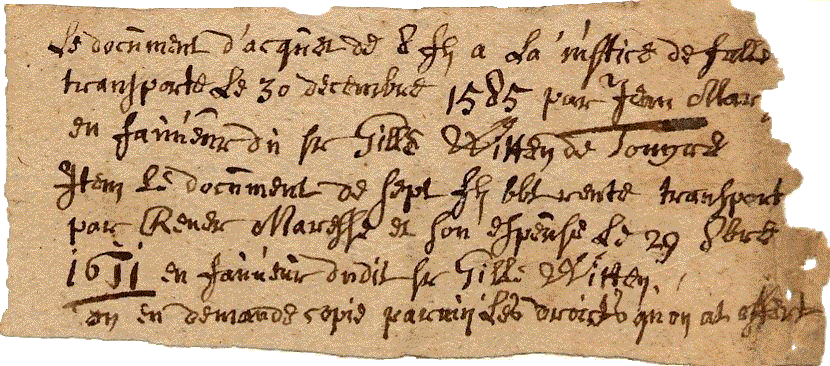 Le document d'acquet de 8 fh a La iustice de falle
transporte Le 30 decembre 1585 par Jean Mar
en faüeür dü sr Gille Witten de Tongre
Item Le document de sept fh bbt rente transport
par Rener Maresse et son espeüse Le 29 8bre
1611 en faüeür dudit sr Gille Witten
on en demande copie parmij Les droicts qu on at offert